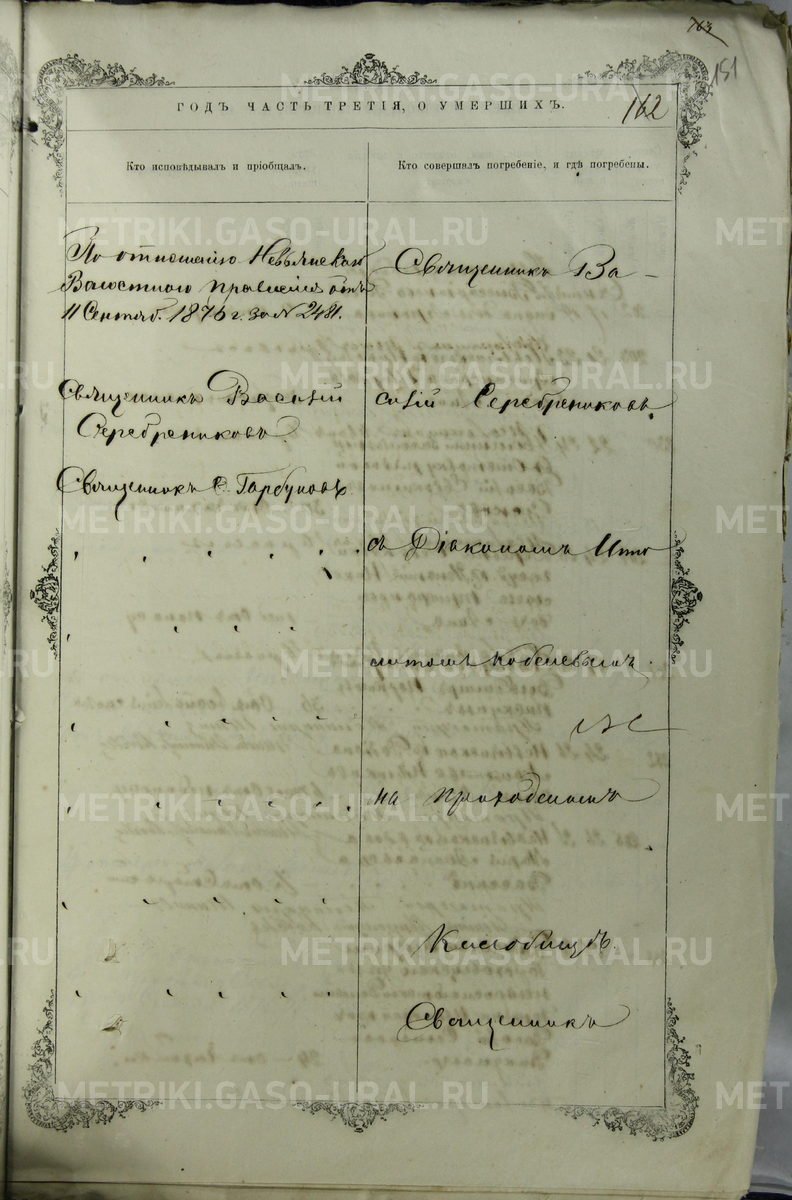 763
151
ГОДЪ ЧАСТЬ ТРЕТІЯ, О УМЕРШИХЪ.
162
Кто исповѣдывалъ и пріобщалъ.
Кто совершалъ погребеніе, и гдѣ погребены.
По отношенію Невьянскаго
Волостнаго правленія отъ
11 Сентяб. 1876 г. за № 2481.
Священникъ Василій
Серебрениковъ.
Священникъ С. Гарбуновъ
Священникъ Ва-
силій Серебрениковъ
съ Діакономъ Иппо
литомъ Кобелевымъ
на приходскомъ
Кладбищѣ.
Священникъ
METRIKI.GASO-URAL.RU